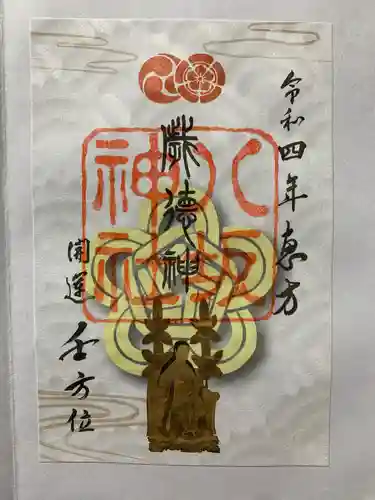 令和四年恵方
歳徳神
八坂
神社
開運
壬方位